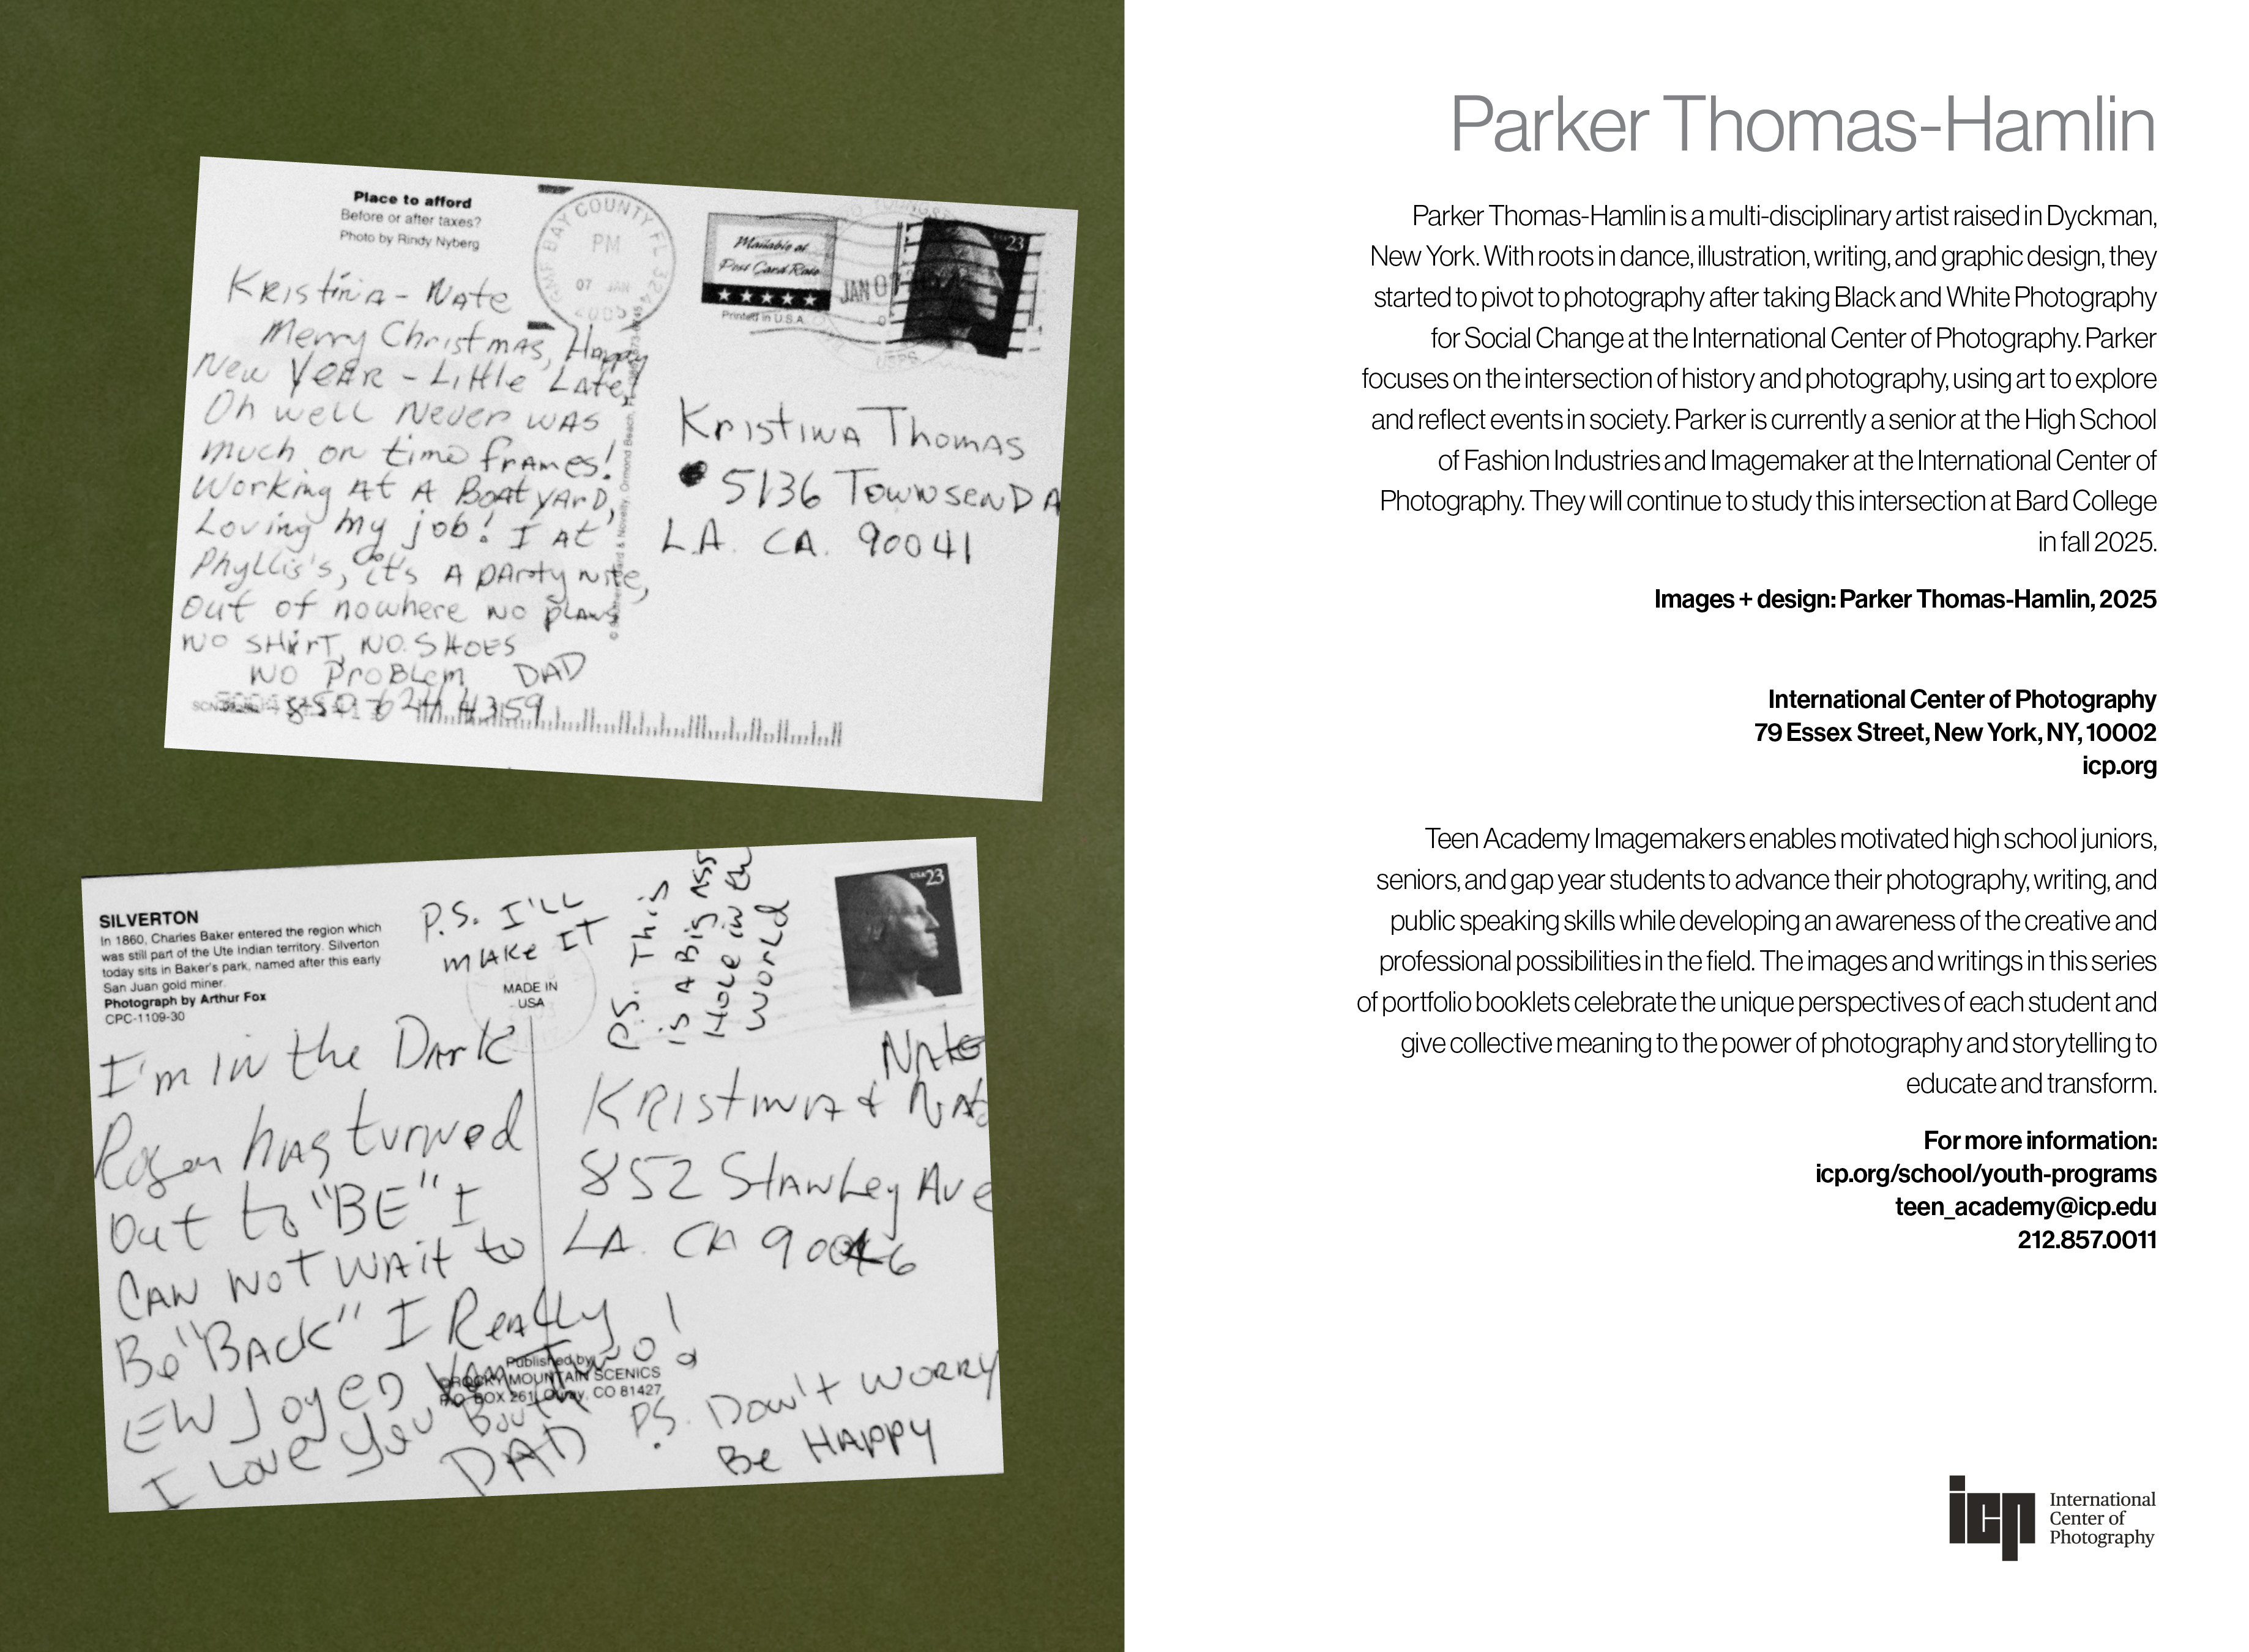 Place to afford
Before or after taxes?
Photo by Rindy Nyberg
BAY COUNTY FL 324
PM
07 JAN
2005
Mailable at
Post Card Rate
Printed in U.S.A.
JAN 07
USPS
23
Kristina - Nate
Merry Christmas, Happy
New Year - Little Late!
Oh well Never was
much on time frames!
Working At A Boatyard,
Loving my job! I At
Phyllis's, it's A pArty nite,
Out of nowhere no plans
NO SHirT, NO. SHOES
NO ProBlem DAD
850 6 24 4359
Kristina Thomas
5136 Townsend A
L.A. CA. 90041
SILVERTON
In 1860, Charles Baker entered the region which
was still part of the Ute Indian territory. Silverton
today sits in Baker's park, named after this early
San Juan gold miner.
Photograph by Arthur Fox
CPC-1109-30
P.S. I'LL
mAke IT
MADE IN
USA
P.S. This
is A Big Ass
Hole in the
World
USA 23
I'm in the Dark
has turned
Out to "BE" I
CAN NOT WAit to
Be "BACK" I ReAlly
ENJoyeD You Two!
I Love You Both
DAD
Nate
KRIstinA + Nate
852 Stanley Ave
LA. CA 90046
Published by
ROCKY MOUNTAIN SCENICS
P.O. BOX 261, Ouray, CO 81427
P.S. Don't worry
Be HAppy
Parker Thomas-Hamlin
Parker Thomas-Hamlin is a multi-disciplinary artist raised in Dyckman,
New York. With roots in dance, illustration, writing, and graphic design, they
started to pivot to photography after taking Black and White Photography
for Social Change at the International Center of Photography. Parker
focuses on the intersection of history and photography, using art to explore
and reflect events in society. Parker is currently a senior at the High School
of Fashion Industries and Imagemaker at the International Center of
Photography. They will continue to study this intersection at Bard College
in fall 2025.
Images + design: Parker Thomas-Hamlin, 2025
International Center of Photography
79 Essex Street, New York, NY, 10002
icp.org
Teen Academy Imagemakers enables motivated high school juniors,
seniors, and gap year students to advance their photography, writing, and
public speaking skills while developing an awareness of the creative and
professional possibilities in the field. The images and writings in this series
of portfolio booklets celebrate the unique perspectives of each student and
give collective meaning to the power of photography and storytelling to
educate and transform.
For more information:
icp.org/school/youth-programs
teen_academy@icp.edu
212.857.0011
icp
International
Center of
Photography